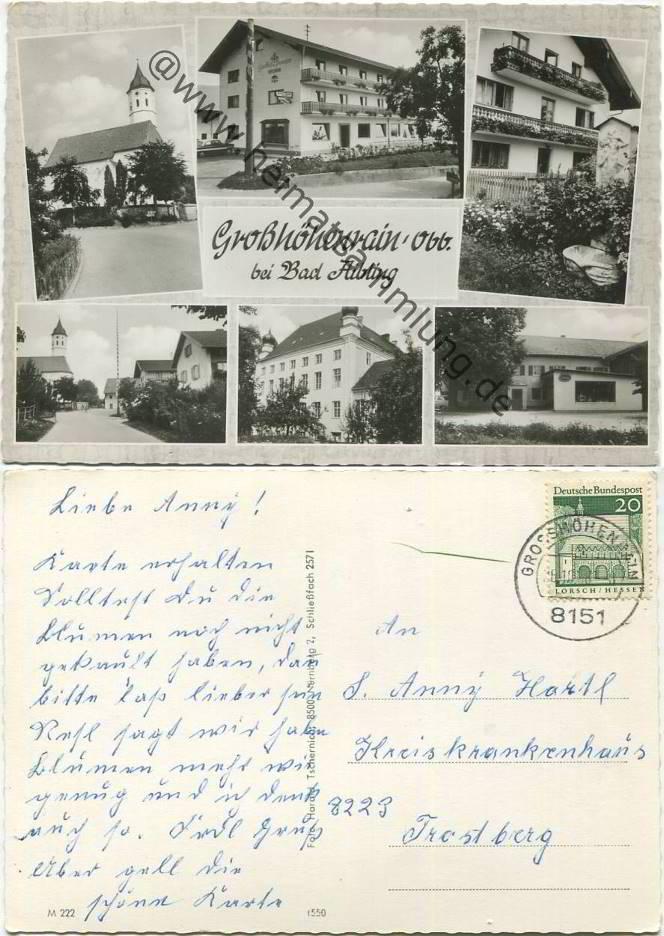 Großhöhenrain, Obb.
bei Bad Aibling
@www.heimatsammlung.de
Liebe Anny!
Karte erhalten
Solltest Du die
Blumen noch nicht
gekauft haben, dan
bitte laß lieber sein
Resl sagt wir habe
Blumen mehr wie
genug und ich denk
auch so. Frdl Gruß
Aber gell die
schöne Karte
M 222
1550
Foto Harald Tschernich, 8500 Nürnberg 2, Schließfach 2571
Deutsche Bundespost
20
LORSCH/HESSEN
8151
An
S. Anny Hartl
Kreiskrankenhaus
8223
Trostberg